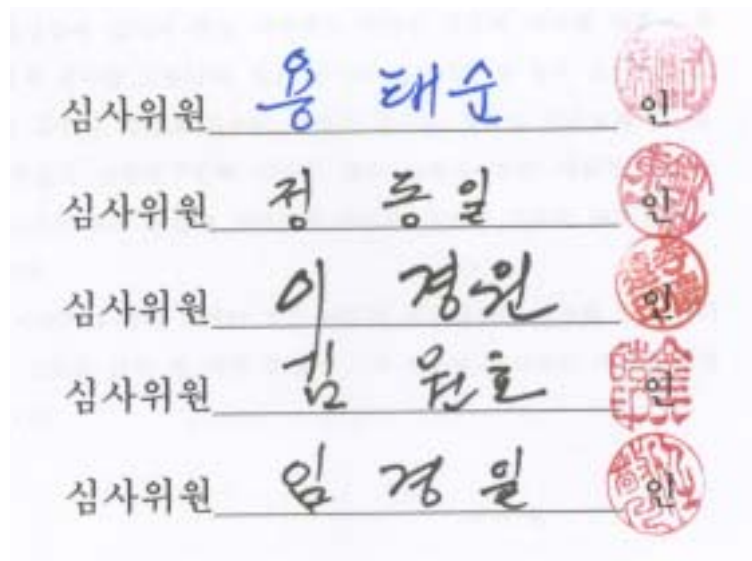 심사위원 용 태순 인
심사위원 정 동일 인
심사위원 이 경원 인
심사위원 김 원호 인
심사위원 임 경일 인